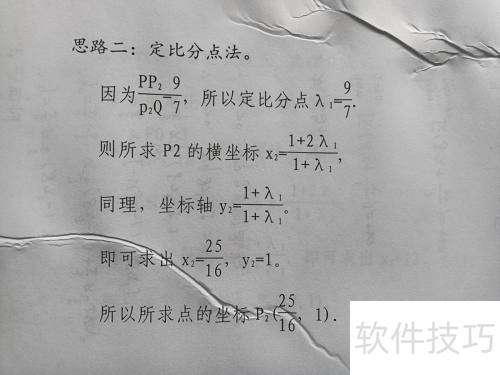 思路二：定比分点法。
因为PP₂/p₂Q=9/7，所以定比分点λ₁=9/7.
则所求P2的横坐标x₂=(1+2λ₁)/(1+λ₁),
同理，坐标轴y₂=(1+λ₁)/(1+λ₁)。
即可求出x₂=25/16, y₂=1。
所以所求点的坐标P₂(25/16, 1).
软件技巧